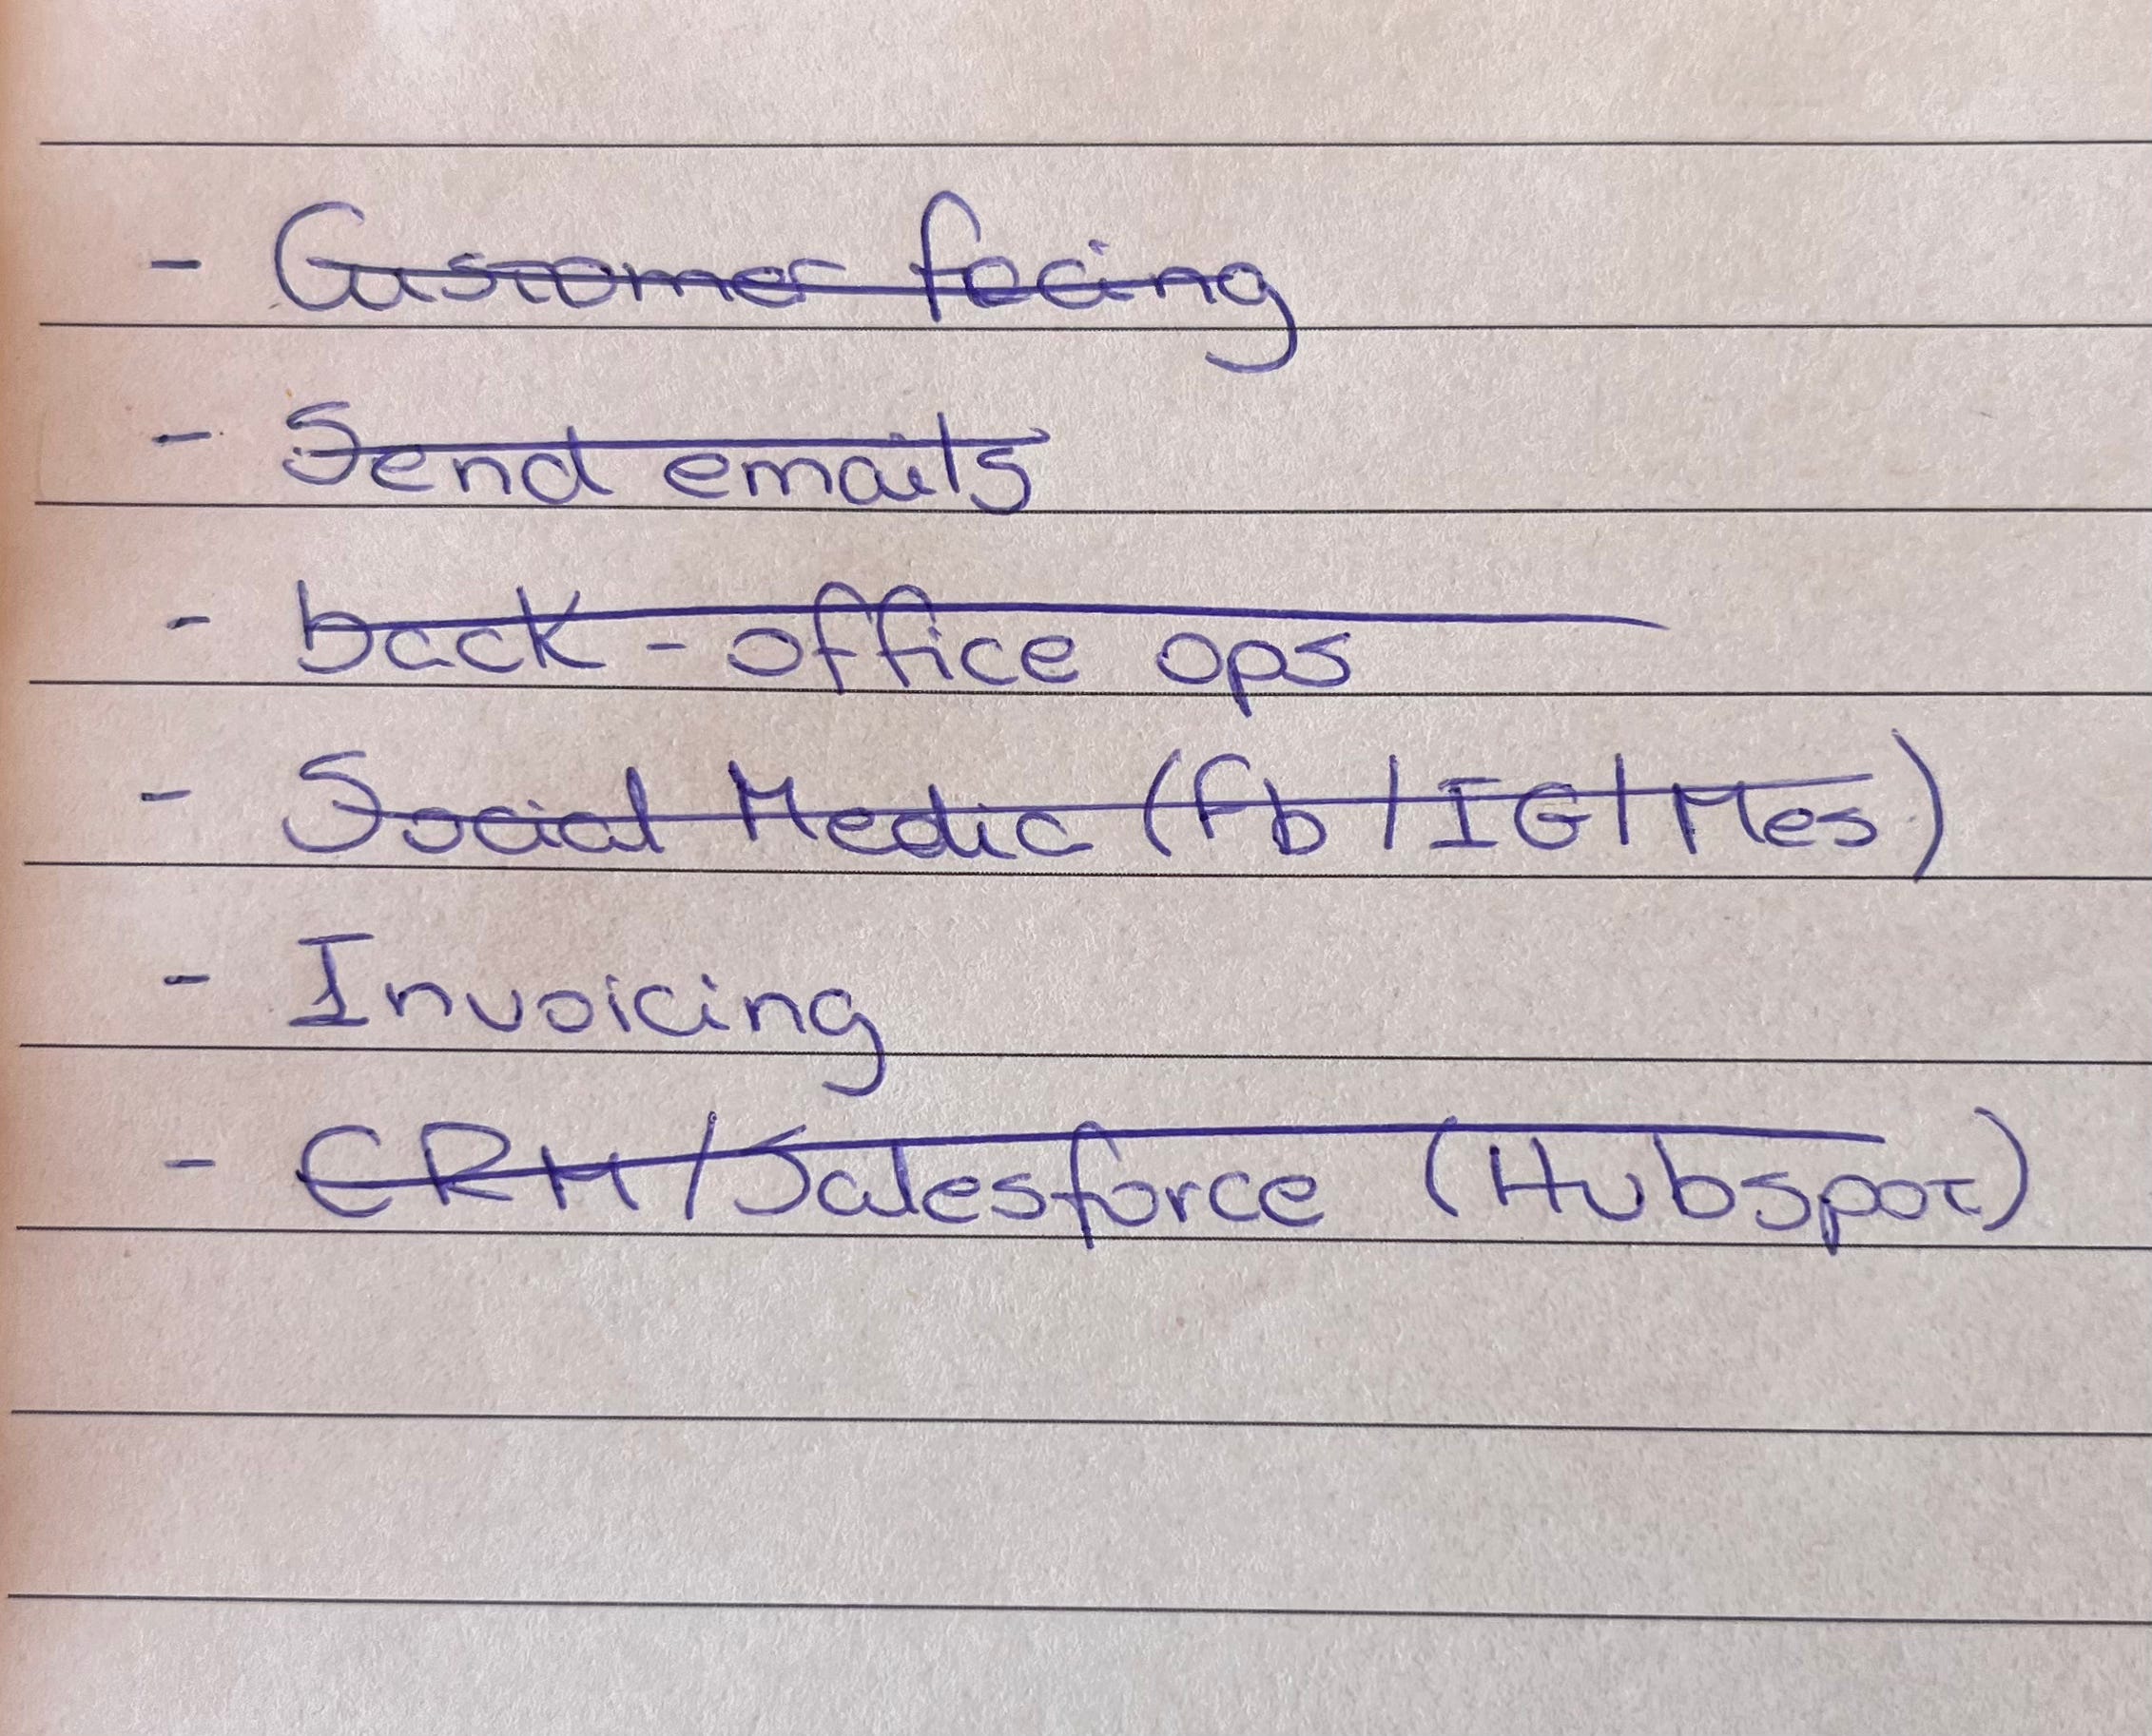 - Customer facing
- Send emails
- back-office ops
- Social Media (fb/IG/Mes)
- Invoicing
- CRM/Salesforce (Hubspot)